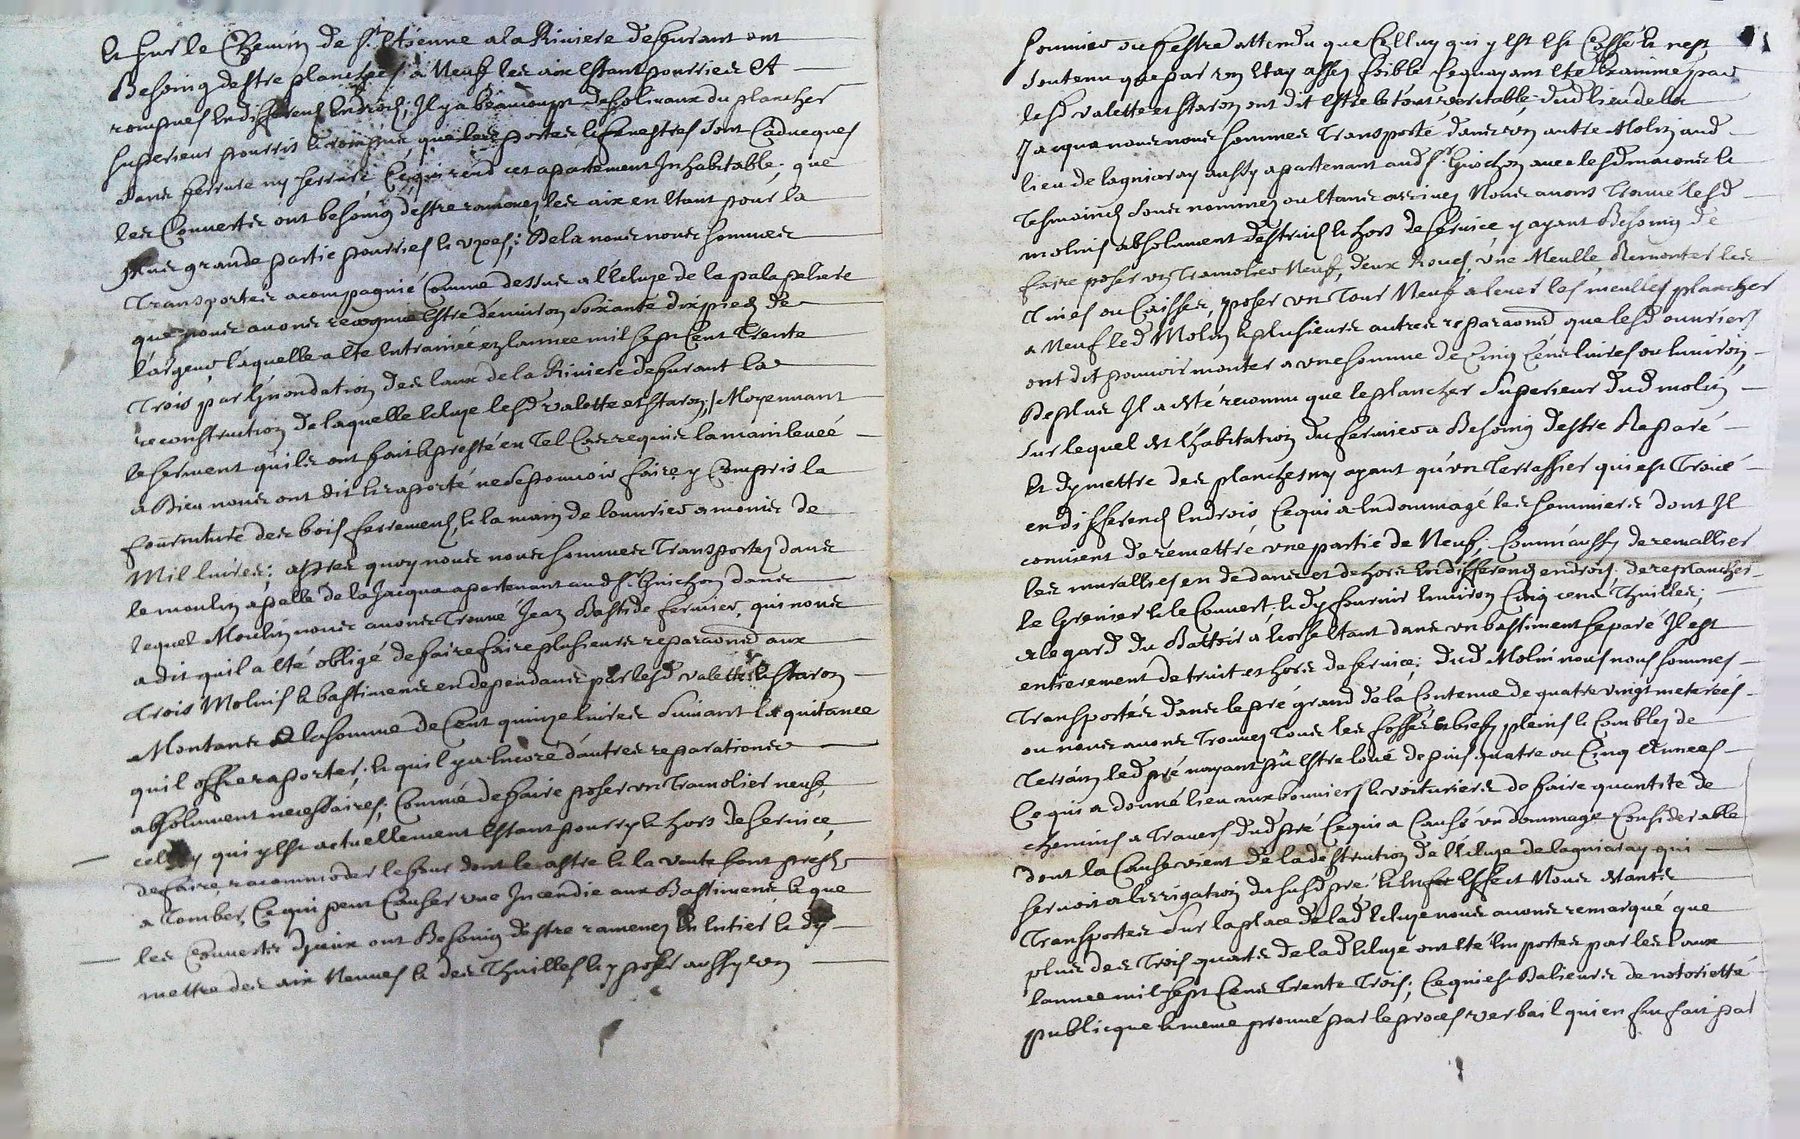 et sur le Chemin de St Etienne a la Riviere de furant ont
Besoing destre planchés a Neuf les aix estant pourries et
rompues en differens endroits; Il y a beaucoup de soliveaux du plancher
superieur pourris et rompus que les portes et fenestres sont caducques
sans ferrure ny serrure Ce qui rend cet apartement Inhabitable; que
les Couverts ont besoing destre remaniez les aix en estant pour la
plus grande partie pourries et uzées; De la nous nous sommes
Transportés acompagnié Comme dessus a l'Ecluze de la
que nous avons recognue Estre denviron Soixante dix pieds de
largeur laquelle a esté Entrainée en lannee mil sept Cent Trente
Trois par l'Inondation des Eaux de la Riviere de furant la
reconstruction de laquelle Ecluze lesd valette et staron / Moyennant
le serment quils ont fait et presté en Tel Cas requis la main levée
a Dieu nous ont dit et raporté ne se pouvoir faire y Compris la
fourniture des bois ferremens et la main de louvrier a moins de
Mil livres; apres quoy nous nous sommes Transportez dans
le moulin apellé de la Jacqua apartenant aud Sr Guichon dans
lequel Moulin nous avons Trouvé Jean Bastide fermier, qui nous
a dit quil a esté obligé de faire faire plusieurs reparaons aux
Trois Molins et bastimens en dependans par lesd valette et staron
Montans a la somme de Cent quinze livres suivant la quitance
quil offre raporter; et quil y a Encore dautres reparations
absolument necessaires; Comme de faire poser un Tramolier neuf
celluy qui y est actuellement Estant pourry et hors de service,
de faire racommoder le four dont le astre et la voute sont prests
a Tomber, Ce qui peut Causer une Incendie aux Bastimens et que
les Couverts diceux ont Besoing destre ramenez En Entier et dy
mettre des aix Neuves et des Thuilles, et y poser aussy un
sommier ou festre attendu que Celluy qui y est est Cassé et nest
soutenu que par un Etay assez foible Ce quayant esté Examiné par
lesd valette et staron ont dit estre le tout veritable dud lieu de la
Jacqua nous nous sommes Transporté dans un autre Molin aud
lieu de lagniaray aussy apartenant aud Sr Guichon avec lesd macons et
Tesmoins sous nommez ou Estans arrivez Nous avons Trouvé lesd
molins absolument destruits et hors de service y ayant Besoing de
faire poser un Tramolier Neuf, deux Roues, une Meulle Remonter les
Tines ou Caisses, poser un Tour Neuf a lever les meulles plancher
a Neuf led Molin et plusieurs autres reparaons que lesd ouvriers
ont dit pouvoir monter a une somme de Cinq Cens livres ou Environ,
De plus Il a esté reconnu que le plancher superieur dud molin
sur lequel est lhabitation du fermier a Besoing destre Reparé
Et dy mettre des planches ny ayant qu'un Terrassier qui est Troué
en differens Endroits Ce qui a Endommagé les sommiers dont Il
convient de remettre une partie de Neuf; Comme aussy de remallier
les muralles en dedans et dehors En differens endroits, de replancher
le Grenier et le Couvert; et dy fournir Environ Cinq cens Thuilles;
a legard du Battoir a Escosse Estant dans un bastiment separé Il est
entierement detruit et hors de service; dud Molin nous nous sommes
Transportés dans le pré grand de la Contenue de quatre vingt meterées
ou nous avons Trouvez Tous les fossés et biefs pleins et Comblez de
Terrain led pré nayant pû Estre loüé depuis quatre ou Cinq Années
Ce qui a donné lieu aux bouviers et voituriers de faire quantité de
chemins a Travers dud pré Ce qui a Causé un dommage Considerable
dont la Cause vient de la destruction de l'Ecluze de lagniaray qui
servoit a lirrigation du susd pré et En Effect Nous estants
Transportés sur la place de lad Ecluze nous avons remarqué que
plus des Trois quarts de lad Ecluze ont esté Emportés par les Eaux
lannee mil sept Cens Trente Trois; Ce qui est Dalieurs de notorietté
publicque et meme prouvé par le proces verbail qui en fut fait par